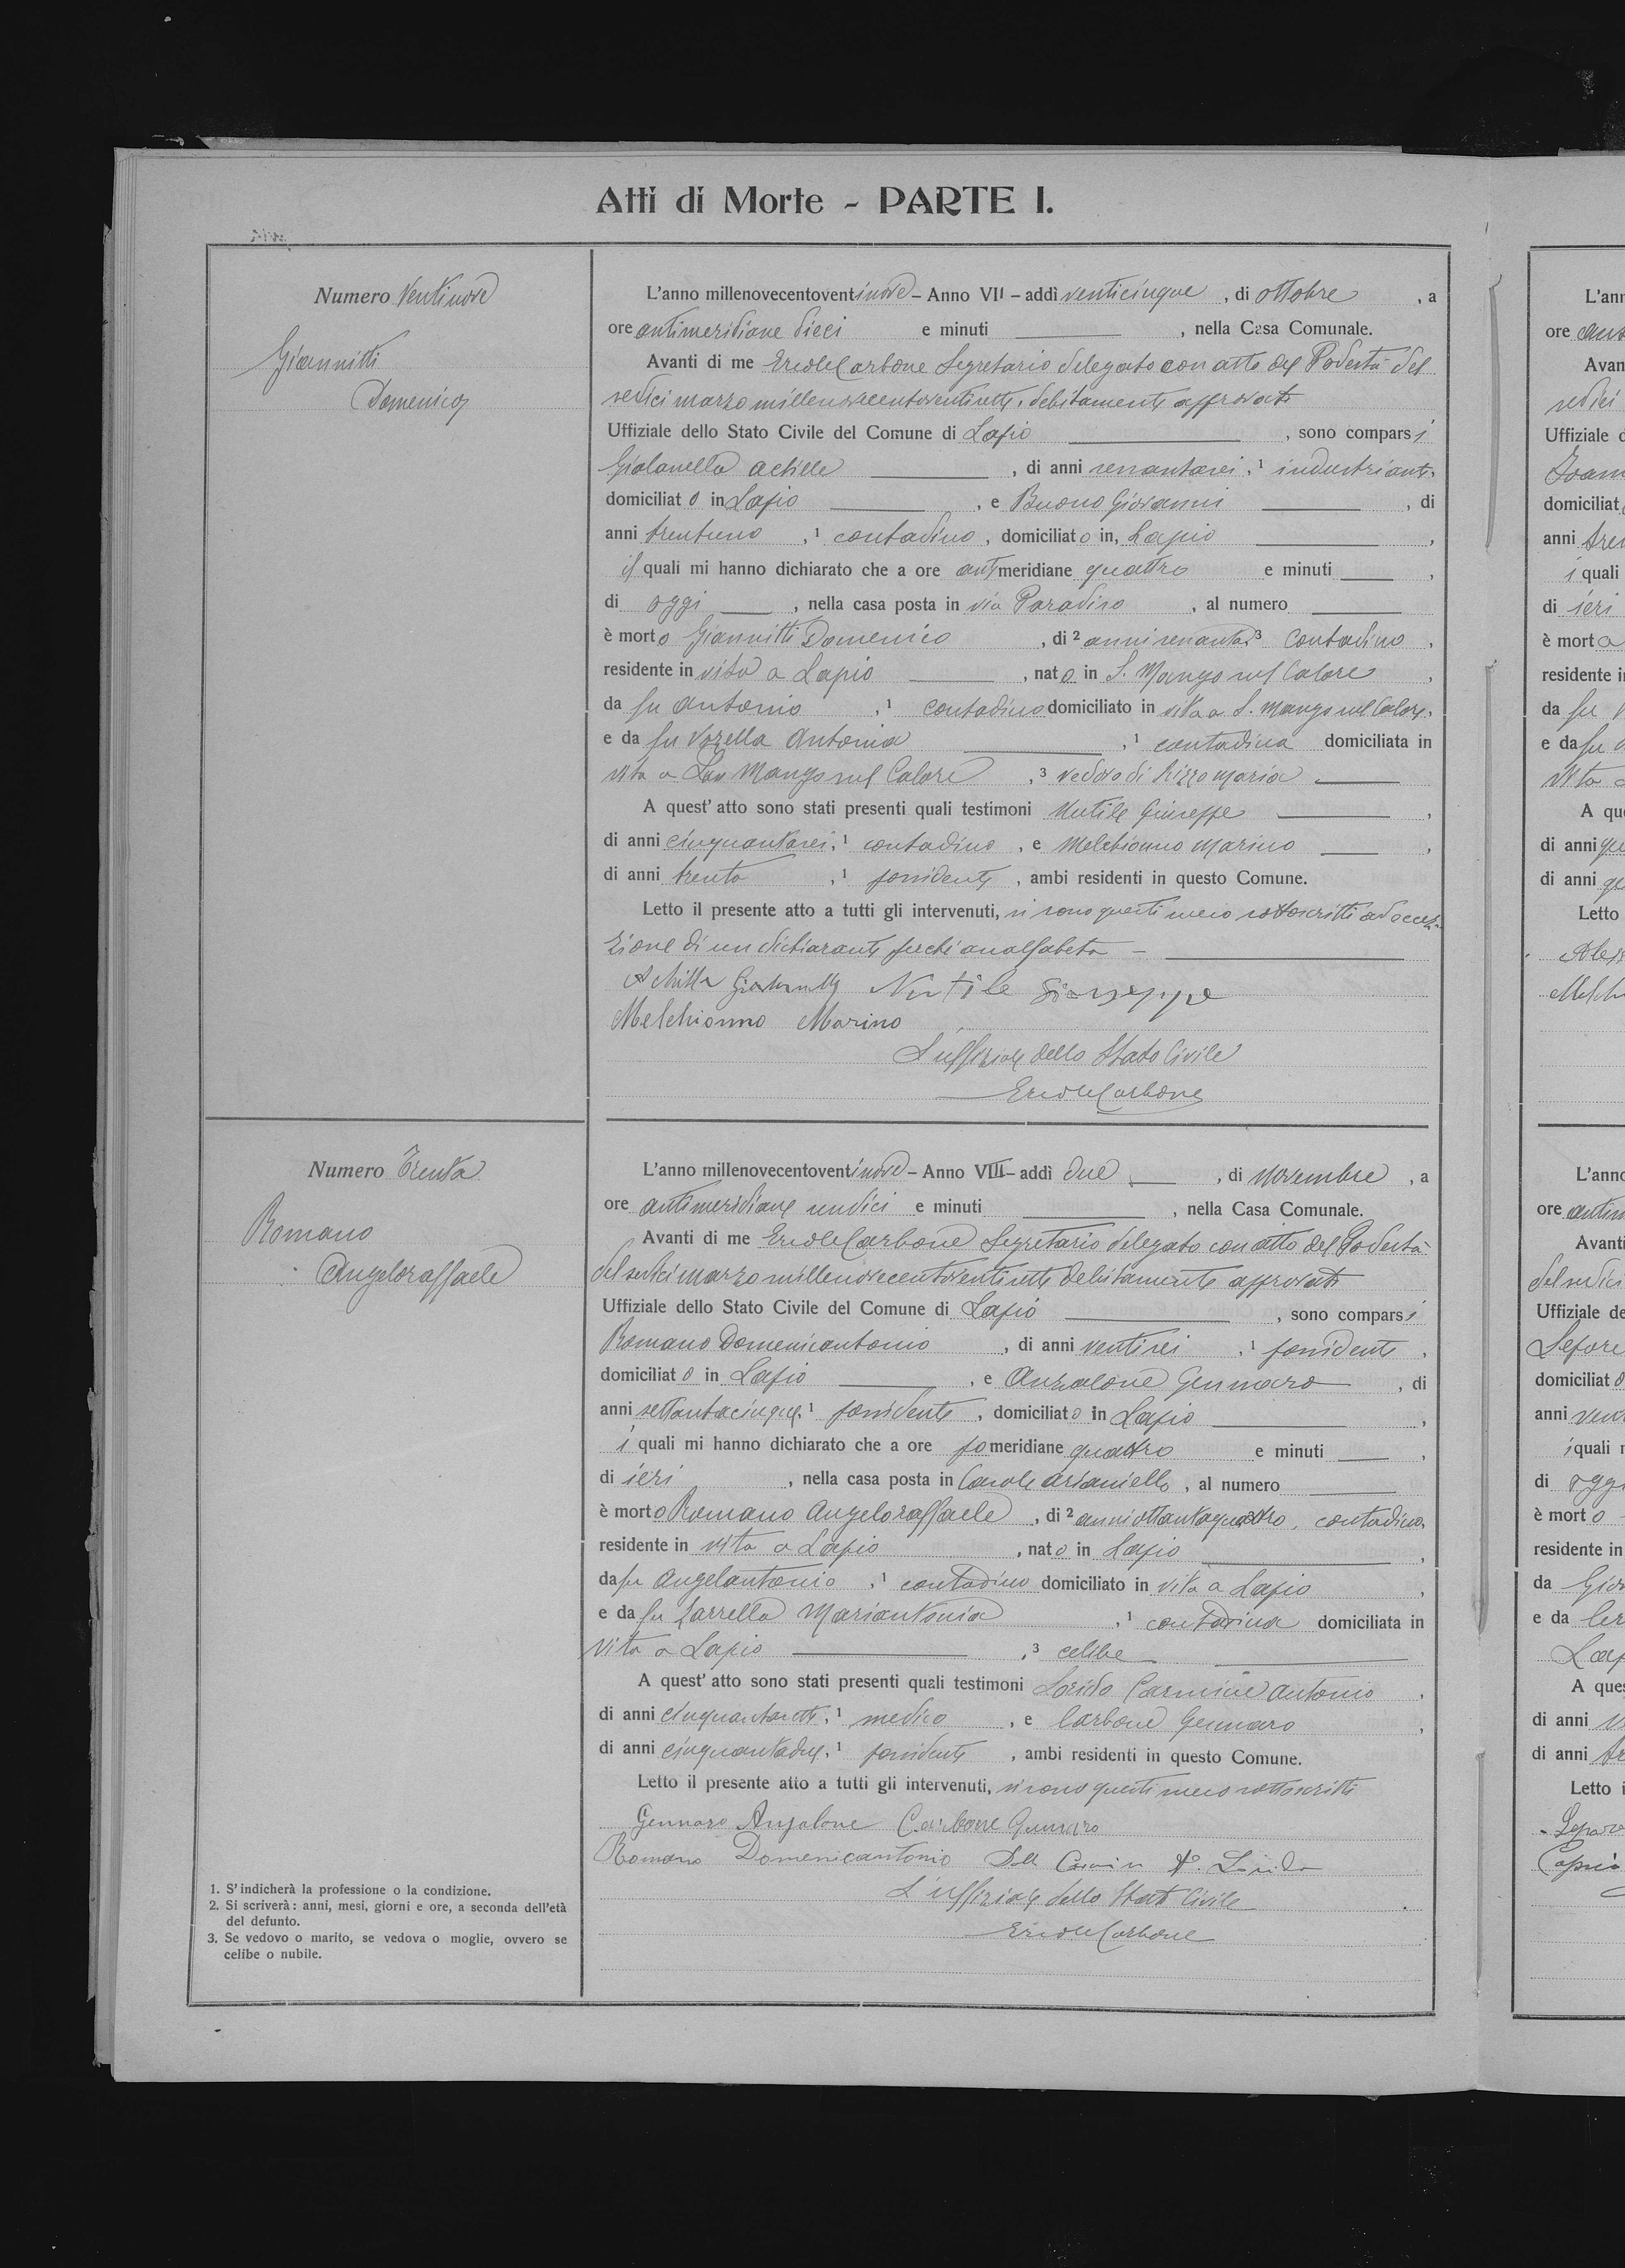 Atti di Morte - PARTE I.
Numero Ventinove
Giannitti
Domenico
L'anno millenovecentoventinove - Anno VII - addì venticinque, di ottobre, a
ore antimeridiane dieci e minuti , nella Casa Comunale.
Avanti di me Ercole Carbone Segretario delegato con atto del Podestà del
sedici marzo millenovecentoventisette, debitamente approvato
Uffiziale dello Stato Civile del Comune di Lapio , sono comparsi
Giolanella Achille , di anni sessantasei, 1 industriante,
domiciliato in Lapio , e Buono Giovanni , di
anni trentuno , 1 contadino, domiciliato in, Lapio ,
i quali mi hanno dichiarato che a ore antimeridiane quattro e minuti ,
di oggi , nella casa posta in via Paradiso , al numero
è morto Giannitti Domenico , di 2 anni 3 contadino,
residente in vita a Lapio , nato in S. Mango sul Calore ,
da fu Antonio , 1 contadino domiciliato in vita a S. Mango sul Calore,
e da fu Antonia , 1 contadina domiciliata in
vita a San Mango sul Calore , 3 vedovo di Rizzo Maria
A quest' atto sono stati presenti quali testimoni Nutile Giuseppe ,
di anni cinquantasei, 1 contadino , e Melchionno Marino ,
di anni trenta , 1 possidente , ambi residenti in questo Comune.
Letto il presente atto a tutti gli intervenuti, si sono questi meco sottoscritti ad ecce-
zione di un dichiarante perché analfabeta -
Achille Nutile Giuseppe
Melchionno Marino
L'uffiziale dello Stato Civile
Ercole Carbone
Numero Trenta
Romano
Angeloraffaele
L'anno millenovecentoventinove - Anno VIII - addì due , di novembre , a
ore antimeridiane undici e minuti , nella Casa Comunale.
Avanti di me Ercole Carbone Segretario delegato con atto del Podestà
del sedici marzo millenovecentoventisette debitamente approvato
Uffiziale dello Stato Civile del Comune di Lapio , sono comparsi
Romano Domenicantonio , di anni ventisei , 1 possidente ,
domiciliato in Lapio , e Anzalone Gennaro , di
anni settantacinque, 1 possidente , domiciliato in Lapio ,
i quali mi hanno dichiarato che a ore pomeridiane quattro e minuti ,
di ieri , nella casa posta in Arianiello , al numero
è morto Romano Angeloraffaele , di 2 anni ottantaquattro, contadino,
residente in vita a Lapio , nato in Lapio ,
da fu Angelantonio , 1 contadino domiciliato in vita a Lapio ,
e da fu Zarrella Mariantonia , 1 contadina domiciliata in
vita a Lapio , 3 celibe
A quest' atto sono stati presenti quali testimoni Carmine Antonio ,
di anni , 1 medico , e Carbone Gennaro ,
di anni cinquantadue, 1 possidente , ambi residenti in questo Comune.
Letto il presente atto a tutti gli intervenuti, si sono questi meco sottoscritti
Gennaro Anzalone Carbone Gennaro
Romano Domenicantonio
L'uffiziale dello Stato Civile
Ercole Carbone
1. S'indicherà la professione o la condizione.
2. Si scriverà: anni, mesi, giorni e ore, a seconda dell'età
del defunto.
3. Se vedovo o marito, se vedova o moglie, ovvero se
celibe o nubile.